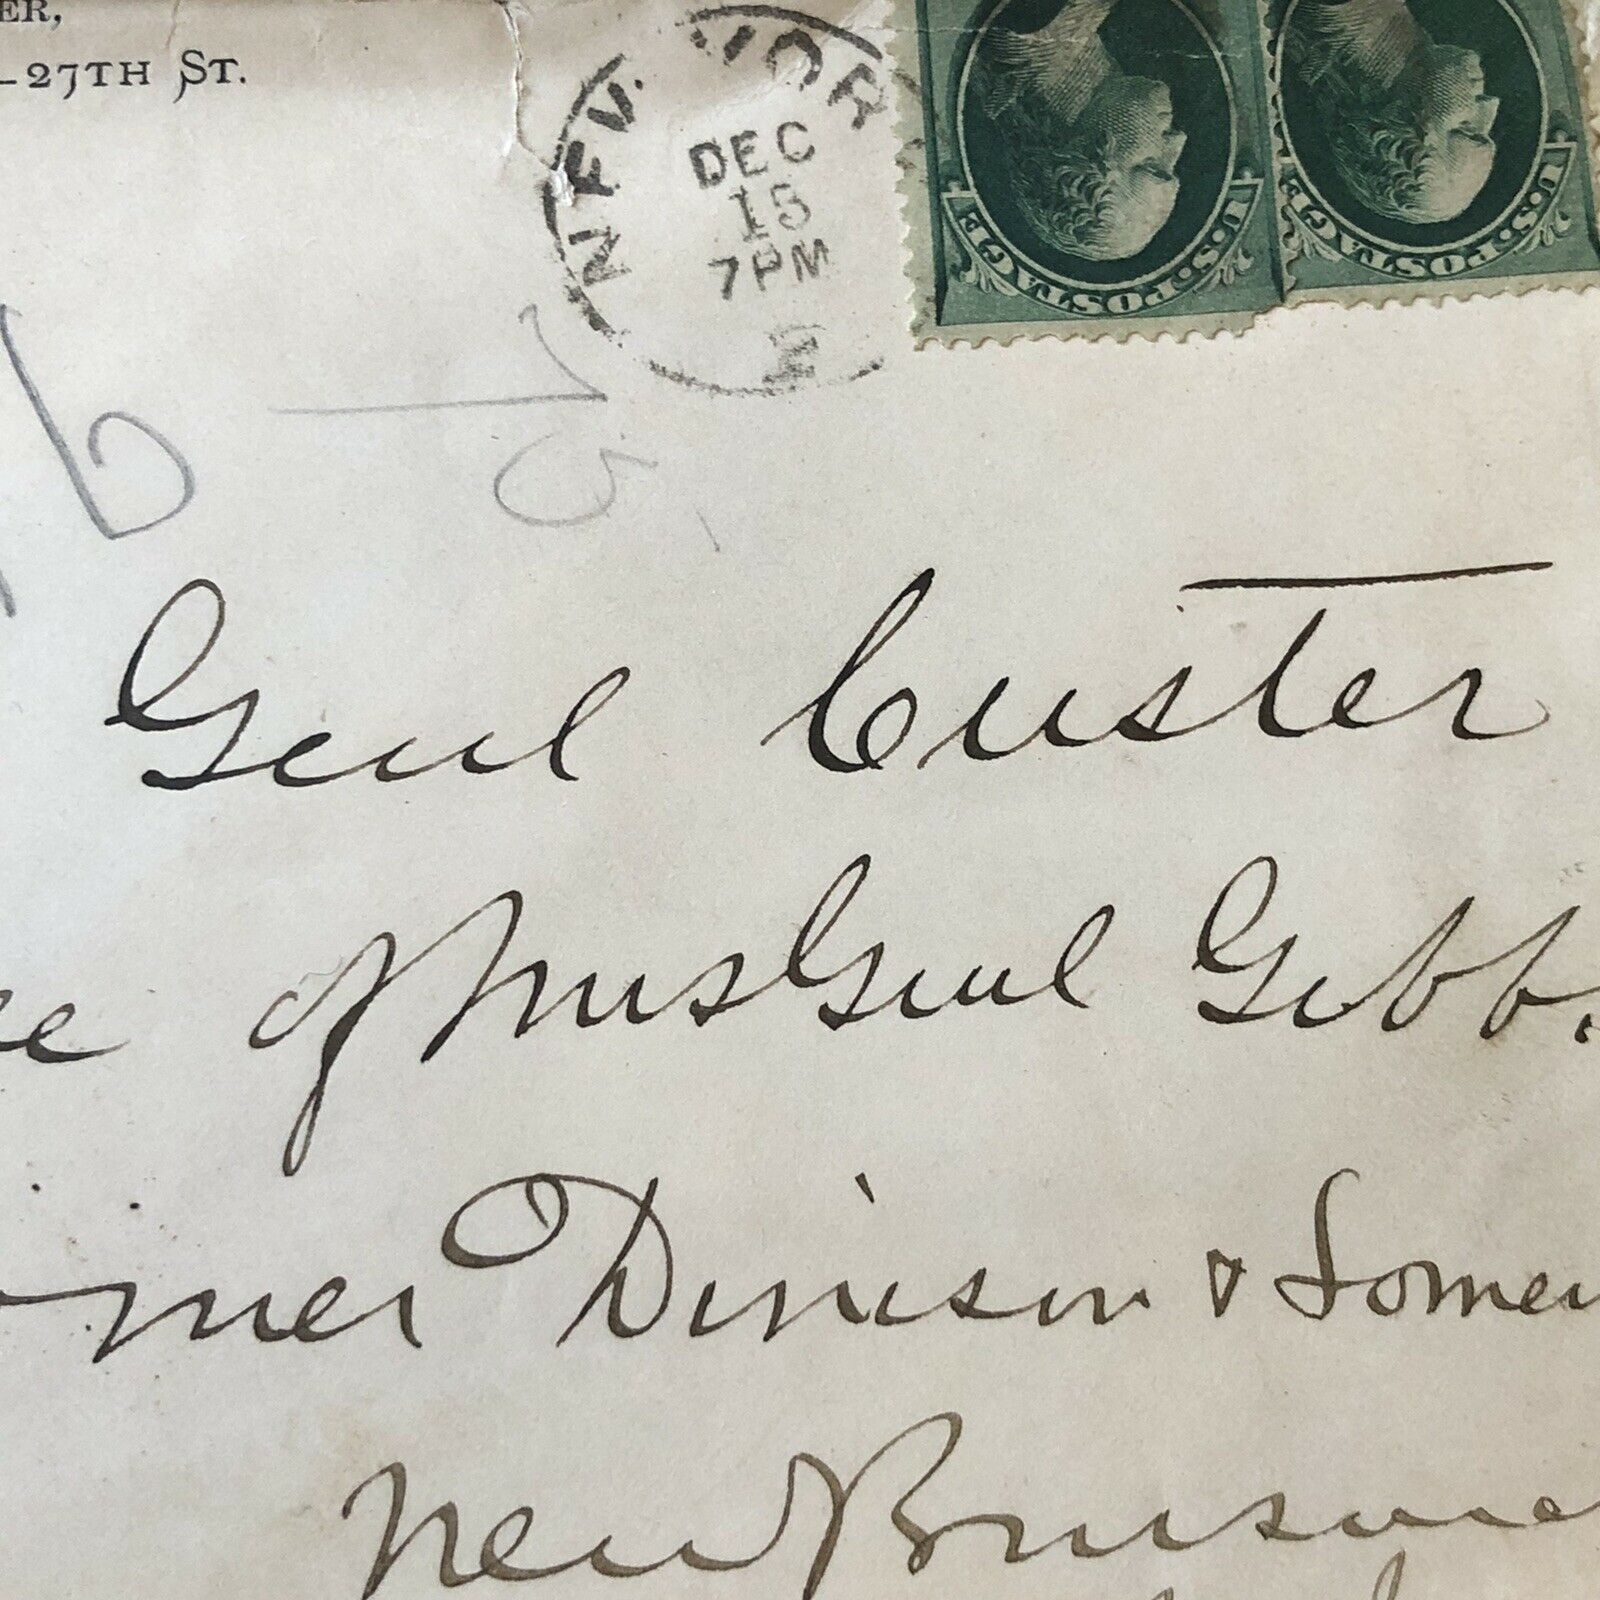 ER,
-27TH ST.
NEW YORK
DEC
15
7PM
U.S. POSTAGE
U.S. POSTAGE
Genl Custer
of Mrs Genl Gibbs.
Denison & Somer
New Brunswi